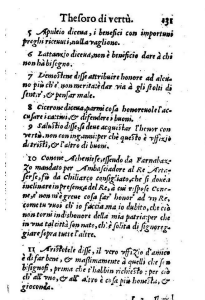 Thesoro di vertù. 131
5 Apuleio diceua, i benefici con importuni
preghi riceuuti, nulla vagliono.
6 Lattanzio diceua, non è beneficio dare à chi
non ha bisogno.
7 Demostene disse attribuire honore ad alcu-
no più che'l non merita è dar via à gli stolti di
sentir', & pensar male.
8 Cicerone diceua, parmi cosa honoreuole l'ac-
cusare i cattiui, & difendere i buoni.
9 Salustio disse, si deue acquistar l'honor con
vertù, non con inganni: per che questo è uffizio
di tristi, & l'altro di buoni.
10 Conone Atheniese, essendo da Farnabaz-
zo mandato per Ambasciadore al Re Artoser-
se, fu da Chiliarco consigliato, che si douesse
inclinare in presenza del Re, à cui rispose Cono-
ne, à non m'è greue cosa far honor ad vn Re,
come tu vuoi ch'io faccia, ma io dubito, che ciò
non torni in dishonore della mia patria: per che
in vna tal città son nato, ch'è solita di signoreg-
giare sopra tutte l'altre.
11 Aristotele disse, il vero uffizio d'amico
è di far bene, & massimamente à quelli che son
bisognosi, prima che l'habbin richiesto: per ciò
ch'all' vno, & all'altro è cosa più honesta, &
gioconda.